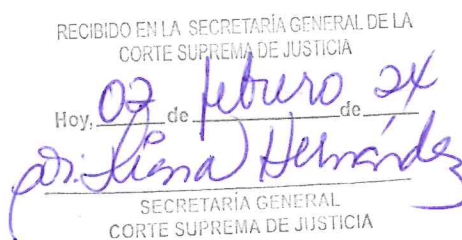 RECIBIDO EN LA SECRETARÍA GENERAL DE LA
CORTE SUPREMA DE JUSTICIA
Hoy, 02 de febrero de 24
Hernández
SECRETARÍA GENERAL
CORTE SUPREMA DE JUSTICIA